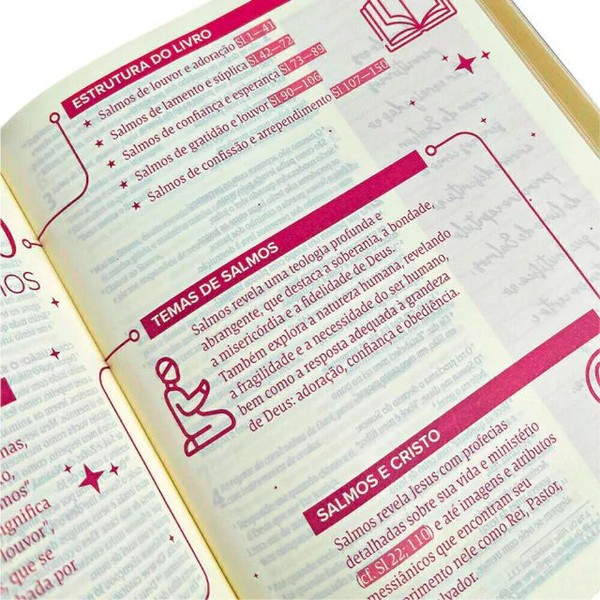 ESTRUTURA DO LIVRO
★ Salmos de louvor e adoração Sl 1—41
★ Salmos de lamento e súplica Sl 42—72
★ Salmos de confiança e esperança Sl 73—89
★ Salmos de gratidão e louvor Sl 90—106
★ Salmos de confissão e arrependimento Sl 107—150
TEMAS DE SALMOS
Salmos revela uma teologia profunda e
abrangente, que destaca a soberania, a bondade,
a misericórdia e a fidelidade de Deus.
Também explora a natureza humana, revelando
a fragilidade e a necessidade do ser humano,
bem como a resposta adequada à grandeza
de Deus: adoração, confiança e obediência.
SALMOS E CRISTO
Salmos revela Jesus com profecias
detalhadas sobre sua vida e ministério
(cf. Sl 22; 110) e até imagens e atributos
messiânicos que encontram seu
primento nele como Rei, Pastor,
lvador.
IOS
nas,
o,
mos"
gnifica
louvor",
que se
hada por